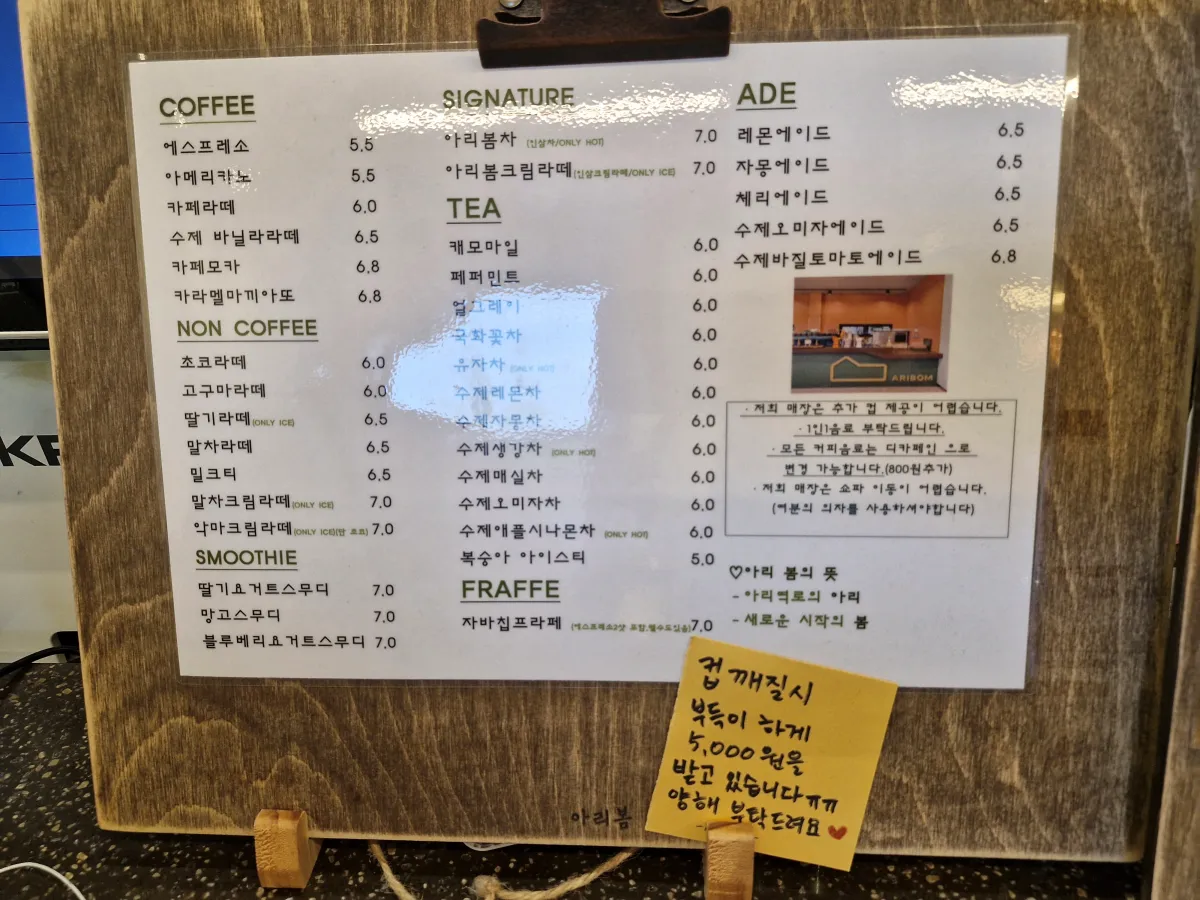 COFFEE
에스프레소 5.5
아메리카노 5.5
카페라떼 6.0
수제 바닐라라떼 6.5
카페모카 6.8
카라멜마끼아또 6.8
NON COFFEE
초코라떼 6.0
고구마라떼 6.0
딸기라떼(ONLY ICE) 6.5
말차라떼 6.5
밀크티 6.5
말차크림라떼(ONLY ICE) 7.0
악마크림라떼(ONLY ICE)(찐 초코) 7.0
SMOOTHIE
딸기요거트스무디 7.0
망고스무디 7.0
블루베리요거트스무디 7.0
SIGNATURE
아리봄차 (인삼차/ONLY HOT) 7.0
아리봄크림라떼(인삼크림라떼/ONLY ICE) 7.0
TEA
캐모마일 6.0
페퍼민트 6.0
얼그레이 6.0
국화꽃차 6.0
유자차 (ONLY HOT) 6.0
수제레몬차 6.0
수제자몽차 6.0
수제생강차 (ONLY HOT) 6.0
수제매실차 6.0
수제오미자차 6.0
수제애플시나몬차 (ONLY HOT) 6.0
복숭아 아이스티 5.0
FRAFFE
자바칩프라페 (에스프레소2샷 포함,뺄수도있음) 7.0
ADE
레몬에이드 6.5
자몽에이드 6.5
체리에이드 6.5
수제오미자에이드 6.5
수제바질토마토에이드 6.8
ARIBOM
· 저희 매장은 추가 컵 제공이 어렵습니다.
· 1인1음료 부탁드립니다.
· 모든 커피음료는 디카페인 으로
변경 가능합니다.(800원추가)
· 저희 매장은 쇼파 이동이 어렵습니다.
(여분의 의자를 사용하셔야합니다)
♡아리 봄의 뜻
- 아리역로의 아리
- 새로운 시작의 봄
컵 깨질시
부득이 하게
5,000원을
받고 있습니다ㅠㅠ
양해 부탁드려요♥
아리봄